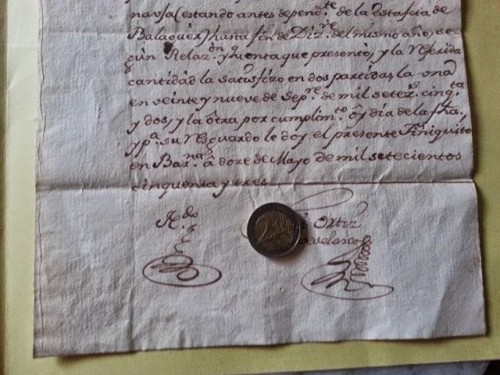 navsa (estando antes depend.te de la estafeta de
Balaguer) hasta fin de Diz.re del mismo año, se
gun Relaz.on y Cuenta que presentó, y la referida
cantidad la satisfizo en dos partidas, la una
en veinte y nueve de Sep.re de mil setez.s cinq.ta
y dos, y la otra por cumplim.to oy dia de la fha,
y p.a su resguardo le doy el presente Finiquito
en Bar.na á doze de Mayo de mil setecientos
cinquenta y tres
R.do
Ortiz
Velasco
2